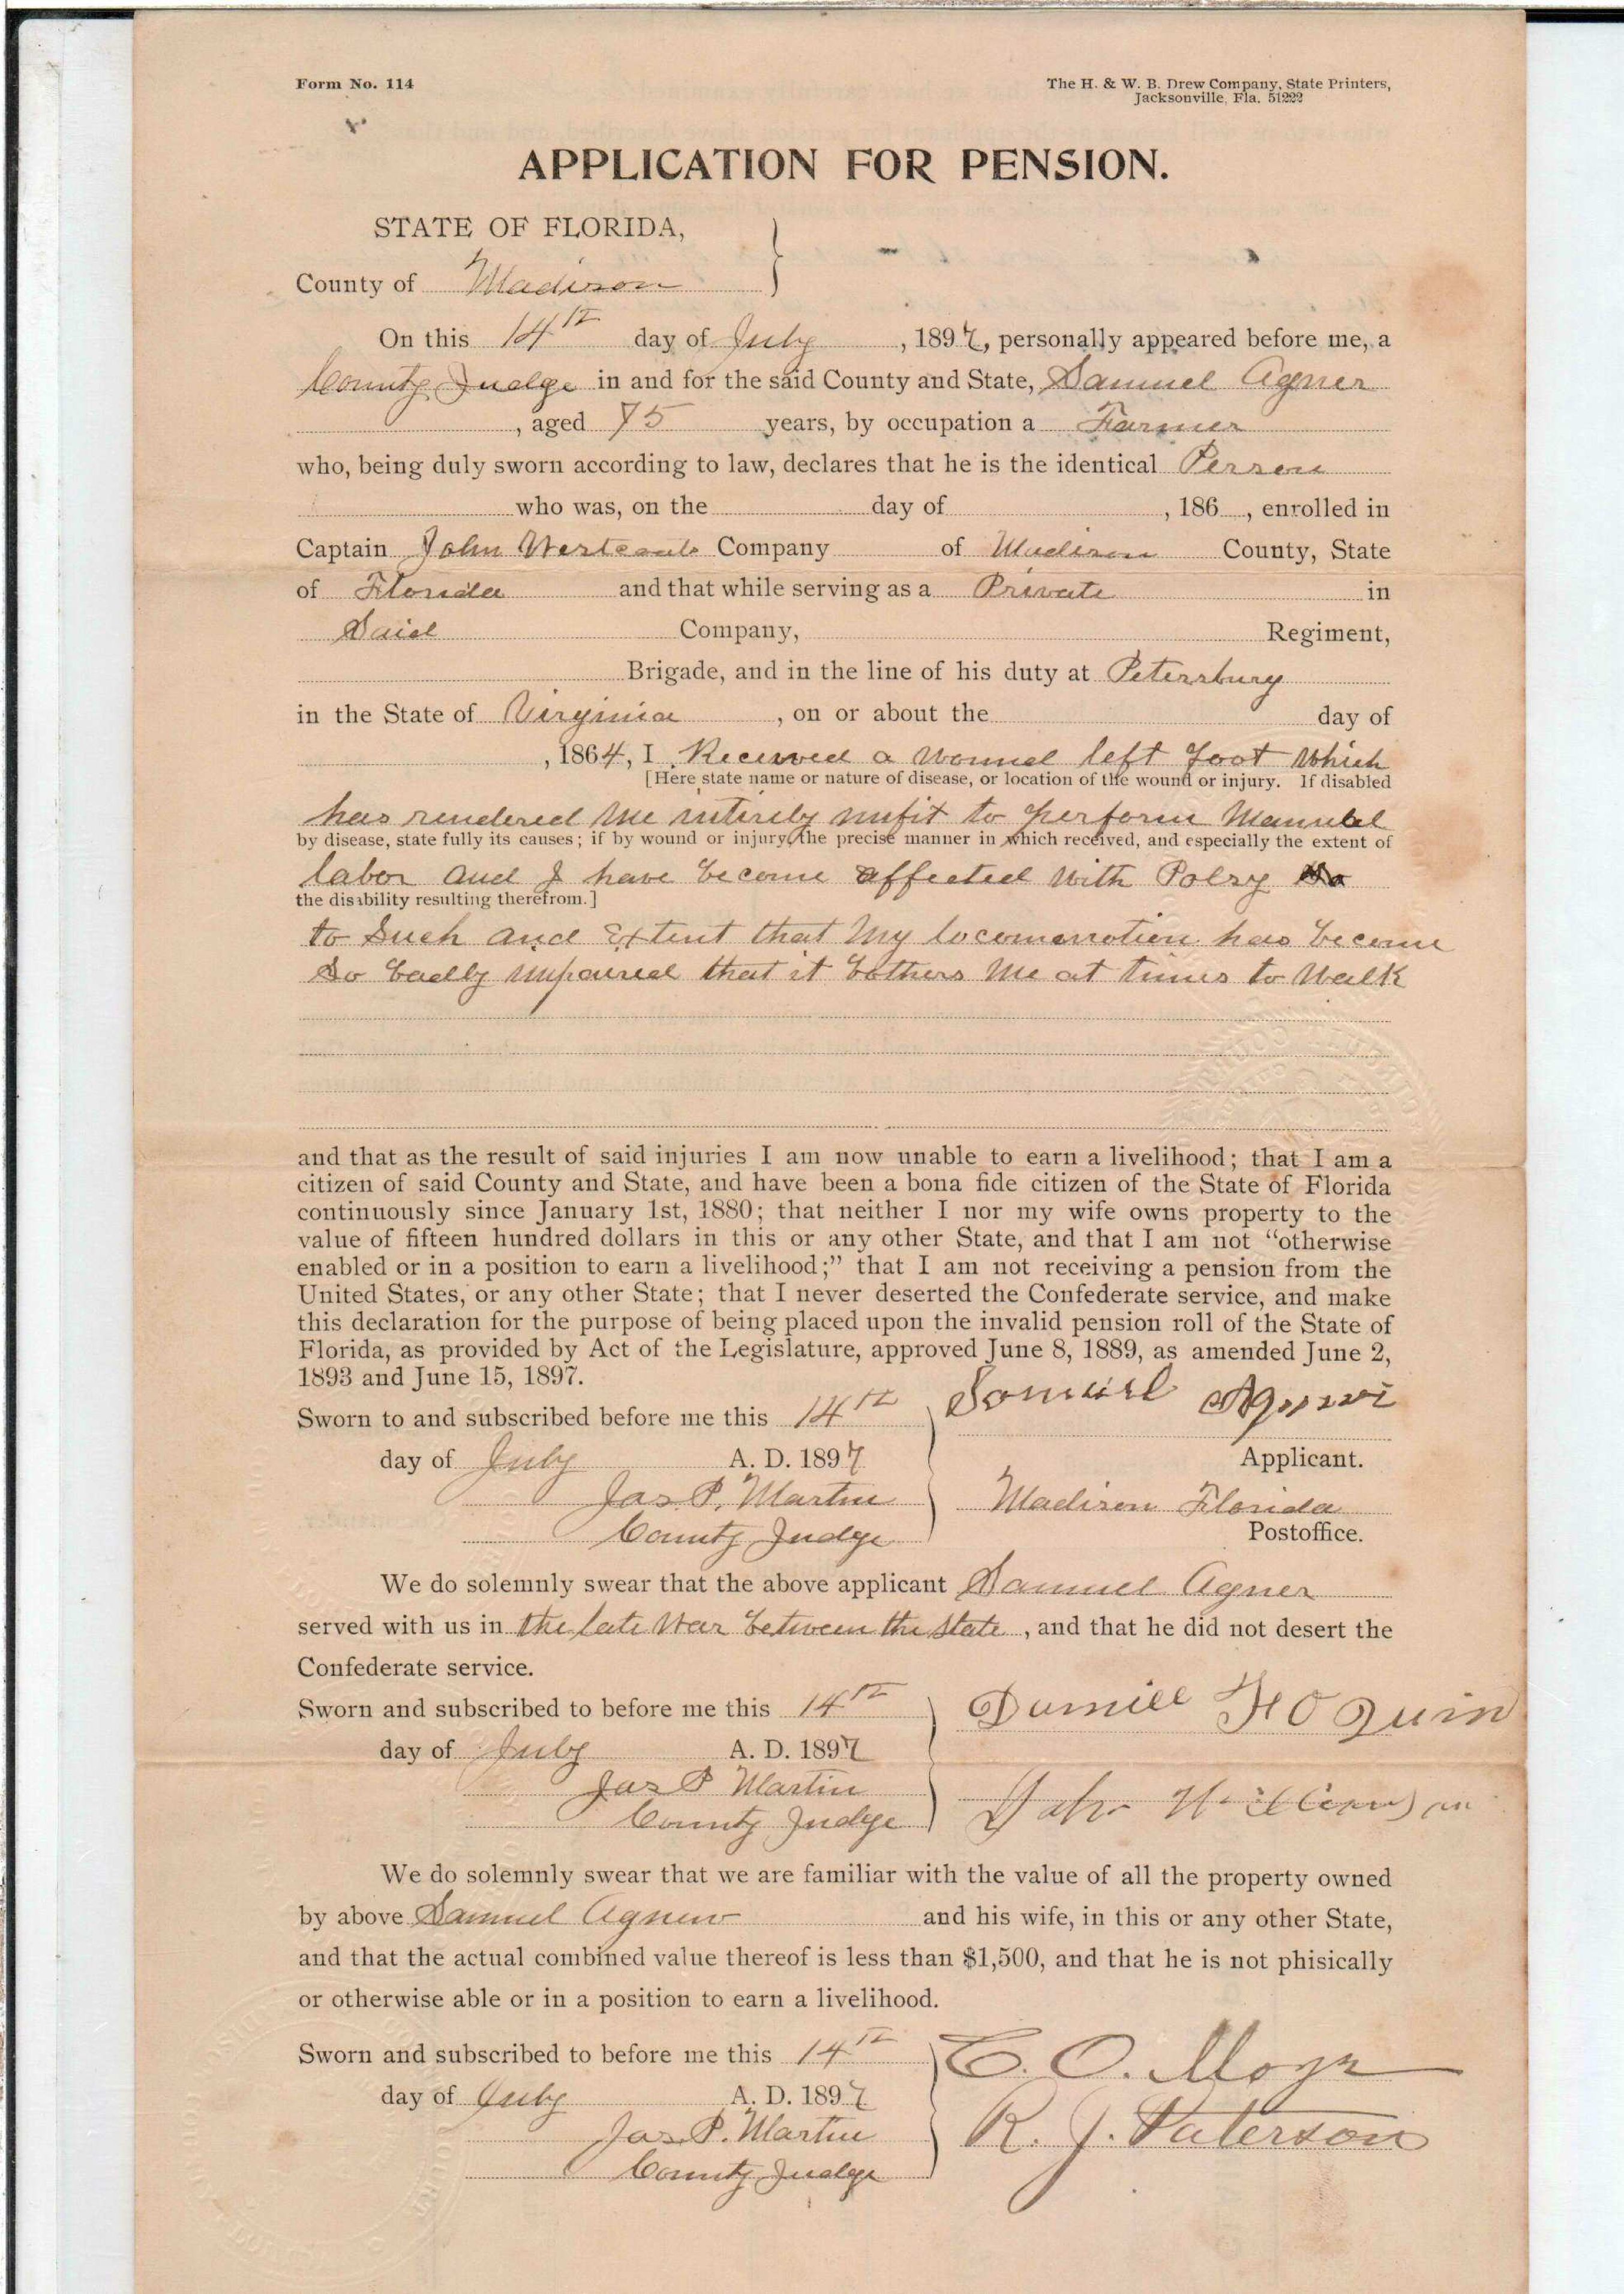 Form No. 114
The H. & W. B. Drew Company, State Printers,
Jacksonville, Fla. 51222
APPLICATION FOR PENSION.
STATE OF FLORIDA,
County of Madison
On this 14th day of July , 1897, personally appeared before me, a
County Judge in and for the said County and State, Samuel Agner
, aged 75 years, by occupation a Farmer
who, being duly sworn according to law, declares that he is the identical Person
who was, on the day of , 186 , enrolled in
Captain John Westcoats Company of Madison County, State
of Florida and that while serving as a Private in
Said Company, Regiment,
Brigade, and in the line of his duty at Petersburg
in the State of Virginia , on or about the day of
, 1864, I Received a wound left foot which
[Here state name or nature of disease, or location of the wound or injury. If disabled
has rendered me entirely unfit to perform Manuel
by disease, state fully its causes; if by wound or injury, the precise manner in which received, and especially the extent of
labor and I have become affected with Polsy
the disability resulting therefrom.]
to Such and Extent that My locomorrotion has become
So badly impaired that it bothers Me at times to Walk
and that as the result of said injuries I am now unable to earn a livelihood; that I am a
citizen of said County and State, and have been a bona fide citizen of the State of Florida
continuously since January 1st, 1880; that neither I nor my wife owns property to the
value of fifteen hundred dollars in this or any other State, and that I am not "otherwise
enabled or in a position to earn a livelihood;" that I am not receiving a pension from the
United States, or any other State; that I never deserted the Confederate service, and make
this declaration for the purpose of being placed upon the invalid pension roll of the State of
Florida, as provided by Act of the Legislature, approved June 8, 1889, as amended June 2,
1893 and June 15, 1897.
Sworn to and subscribed before me this 14th Samuel
day of July A. D. 1897 Applicant.
Jas. P. Martin Madison Florida
County Judge Postoffice.
We do solemnly swear that the above applicant Samuel Agner
served with us in the late War between the State , and that he did not desert the
Confederate service.
Sworn and subscribed to before me this 14th
day of July A. D. 1897
Jas P Martin
County Judge
We do solemnly swear that we are familiar with the value of all the property owned
by above Samuel Agnew and his wife, in this or any other State,
and that the actual combined value thereof is less than $1,500, and that he is not phisically
or otherwise able or in a position to earn a livelihood.
Sworn and subscribed to before me this 14th C. O.
day of July A. D. 1897
Jas. P. Martin R. J. Paterson
County Judge